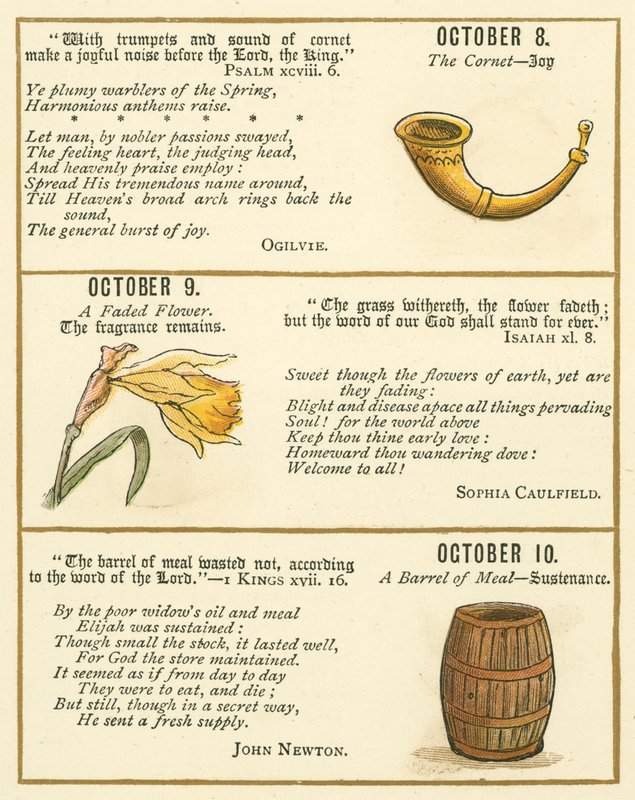 “With trumpets and sound of cornet
make a joyful noise before the Lord, the King.”
PSALM xcviii. 6.
Ye plumy warblers of the Spring,
Harmonious anthems raise.
* * * * * *
Let man, by nobler passions swayed,
The feeling heart, the judging head,
And heavenly praise employ:
Spread His tremendous name around,
Till Heaven's broad arch rings back the
sound,
The general burst of joy.
OGILVIE.
OCTOBER 8.
The Cornet—Joy
OCTOBER 9.
A Faded Flower.
The fragrance remains.
“The grass withereth, the flower fadeth;
but the word of our God shall stand for ever.”
ISAIAH xl. 8.
Sweet though the flowers of earth, yet are
they fading:
Blight and disease apace all things pervading
Soul! for the world above
Keep thou thine early love:
Homeward thou wandering dove:
Welcome to all!
SOPHIA CAULFIELD.
“The barrel of meal wasted not, according
to the word of the Lord.”—1 KINGS xvii. 16.
By the poor widow's oil and meal
Elijah was sustained:
Though small the stock, it lasted well,
For God the store maintained.
It seemed as if from day to day
They were to eat, and die;
But still, though in a secret way,
He sent a fresh supply.
JOHN NEWTON.
OCTOBER 10.
A Barrel of Meal—Sustenance.